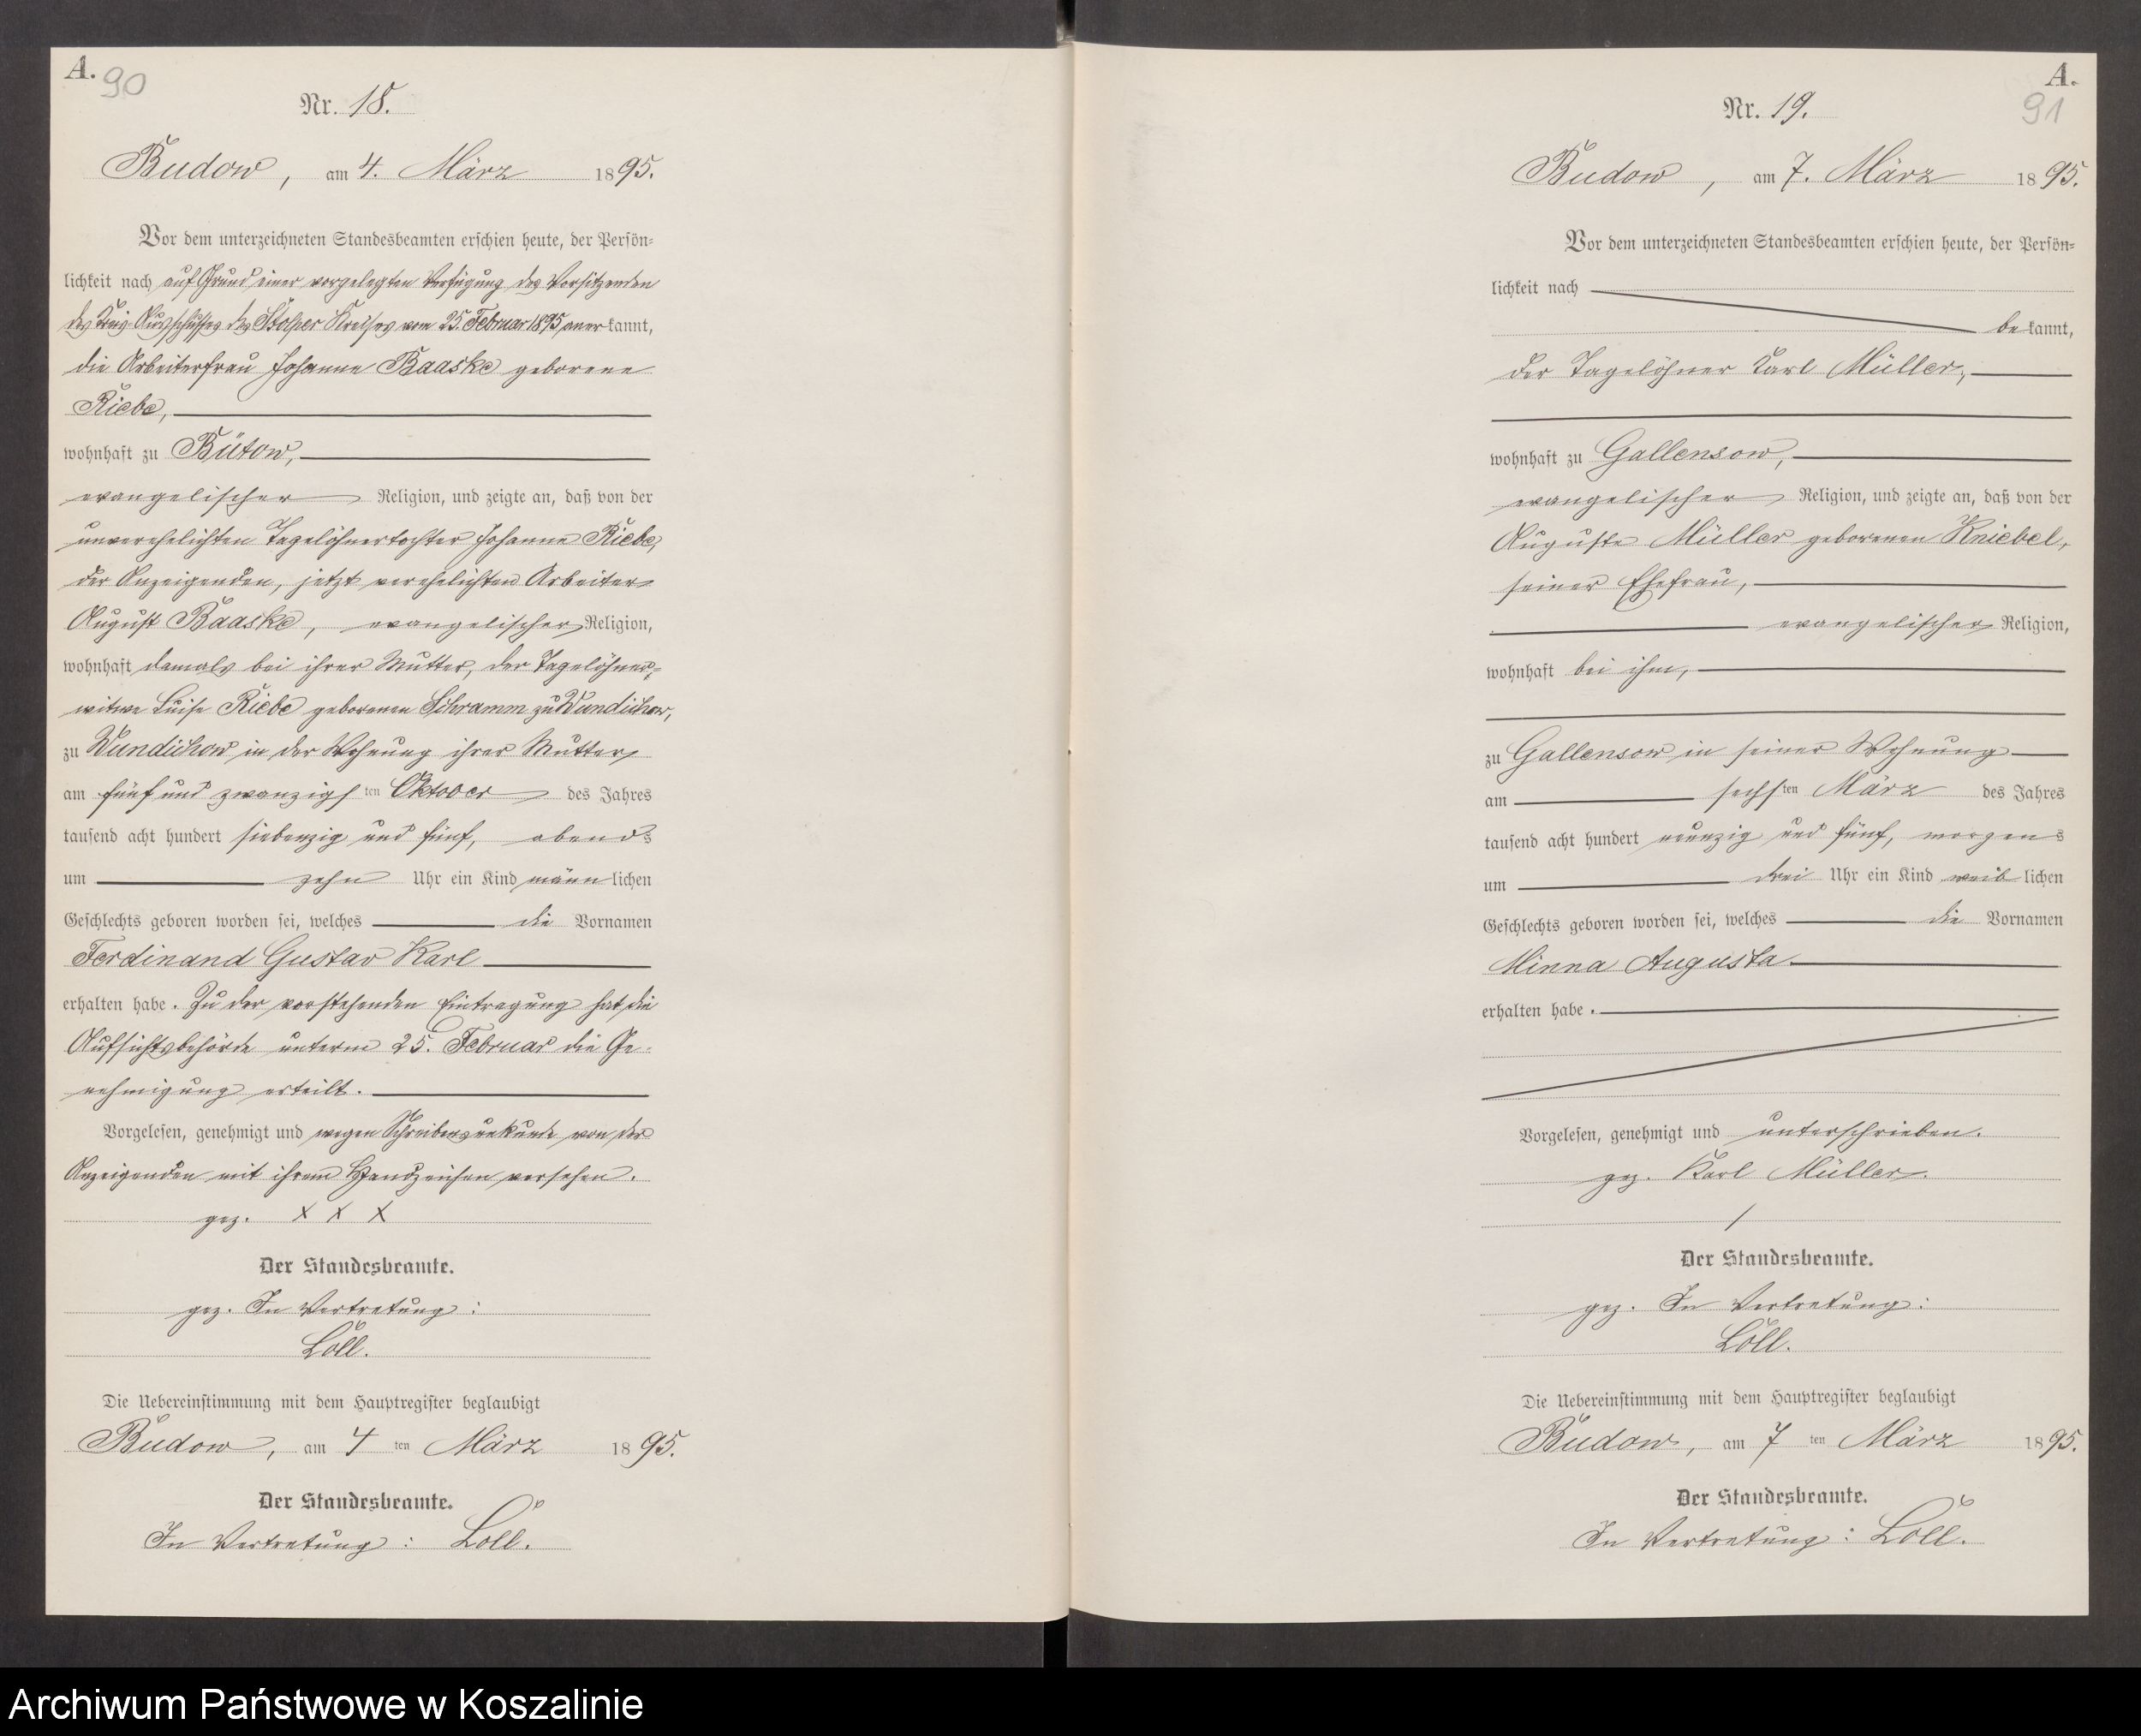 A.
90
Nr. 18.
Budow, am 4. März 1895.
Vor dem unterzeichneten Standesbeamten erschien heute, der Persön=
lichkeit nach auf Grund einer vorgelegten Verfügung des Vorsitzenden
des Kreis-Ausschusses des Stolper Kreises vom 25. Februar 1895 anerkannt,
die Arbeiterfrau Johanne Baaske geborene
Riebe,
wohnhaft zu Bütow,
evangelischer Religion, und zeigte an, daß von der
unverehelichten Tagelöhnertochter Johanne Riebe,
der Anzeigenden, jetzt verehelichten Arbeiter
August Baaske, evangelischer Religion,
wohnhaft damals bei ihrer Mutter, der Tagelöhner=
witwe Luise Riebe geborenen Schramm zu Wundichow,
zu Wundichow in der Wohnung ihrer Mutter
am fünf und zwanzigsten Oktober des Jahres
tausend acht hundert siebenzig und fünf, abends
um zehn Uhr ein Kind männlichen
Geschlechts geboren worden sei, welches die Vornamen
Ferdinand Gustav Karl
erhalten habe. Zu der vorstehenden Eintragung hat die
Aufsichtsbehörde unterm 25. Februar die Ge-
nehmigung erteilt.
Vorgelesen, genehmigt und wegen Schreibensunkunde von der
Anzeigenden mit ihrem Handzeichen versehen.
gez. X X X
Der Standesbeamte.
gez. In Vertretung:
Löll.
Die Uebereinstimmung mit dem Hauptregister beglaubigt
Budow, am 4ten März 1895.
Der Standesbeamte.
In Vertretung: Löll.
A.
91
Nr. 19.
Budow, am 7. März 1895.
Vor dem unterzeichneten Standesbeamten erschien heute, der Persön=
lichkeit nach
bekannt,
der Tagelöhner Karl Müller,
wohnhaft zu Gallensow,
evangelischer Religion, und zeigte an, daß von der
Auguste Müller geborenen Kniebel,
seiner Ehefrau,
evangelischer Religion,
wohnhaft bei ihm,
zu Gallensow in seiner Wohnung
am sechsten März des Jahres
tausend acht hundert neunzig und fünf, morgens
um drei Uhr ein Kind weiblichen
Geschlechts geboren worden sei, welches die Vornamen
Minna Augusta
erhalten habe.
Vorgelesen, genehmigt und unterschrieben.
gez. Karl Müller.
Der Standesbeamte.
gez. In Vertretung:
Löll.
Die Uebereinstimmung mit dem Hauptregister beglaubigt
Budow, am 7ten März 1895.
Der Standesbeamte.
In Vertretung: Löll.
Archiwum Państwowe w Koszalinie